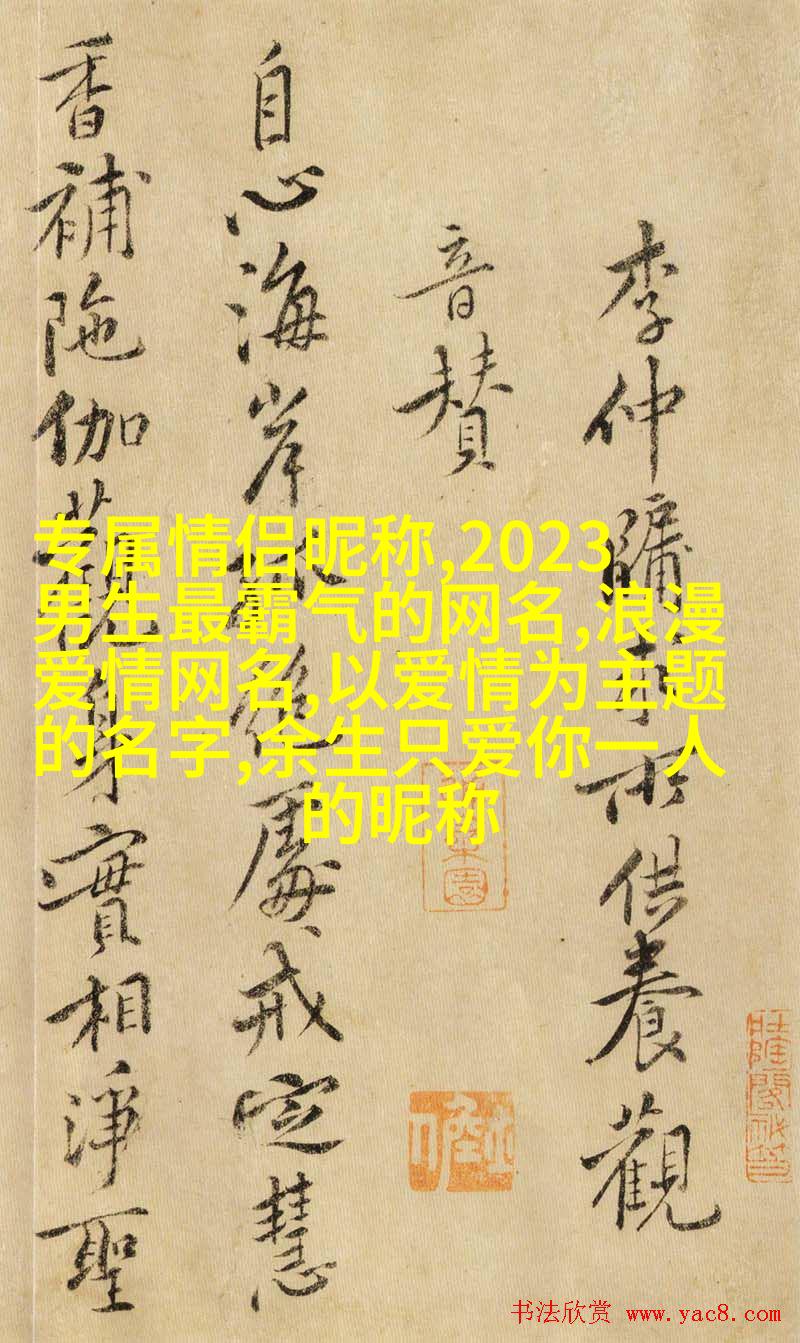 李仲牖求所供養觀
音贊
自心海岸孤絕處戒定慧
香補陁伽觀身實相淨聖
专属情侣昵称,2023
男生最霸气的网名,浪漫
爱情网名,以爱情为主题
的名字,余生只爱你一人
的昵称
书法欣赏 www.yac8.com